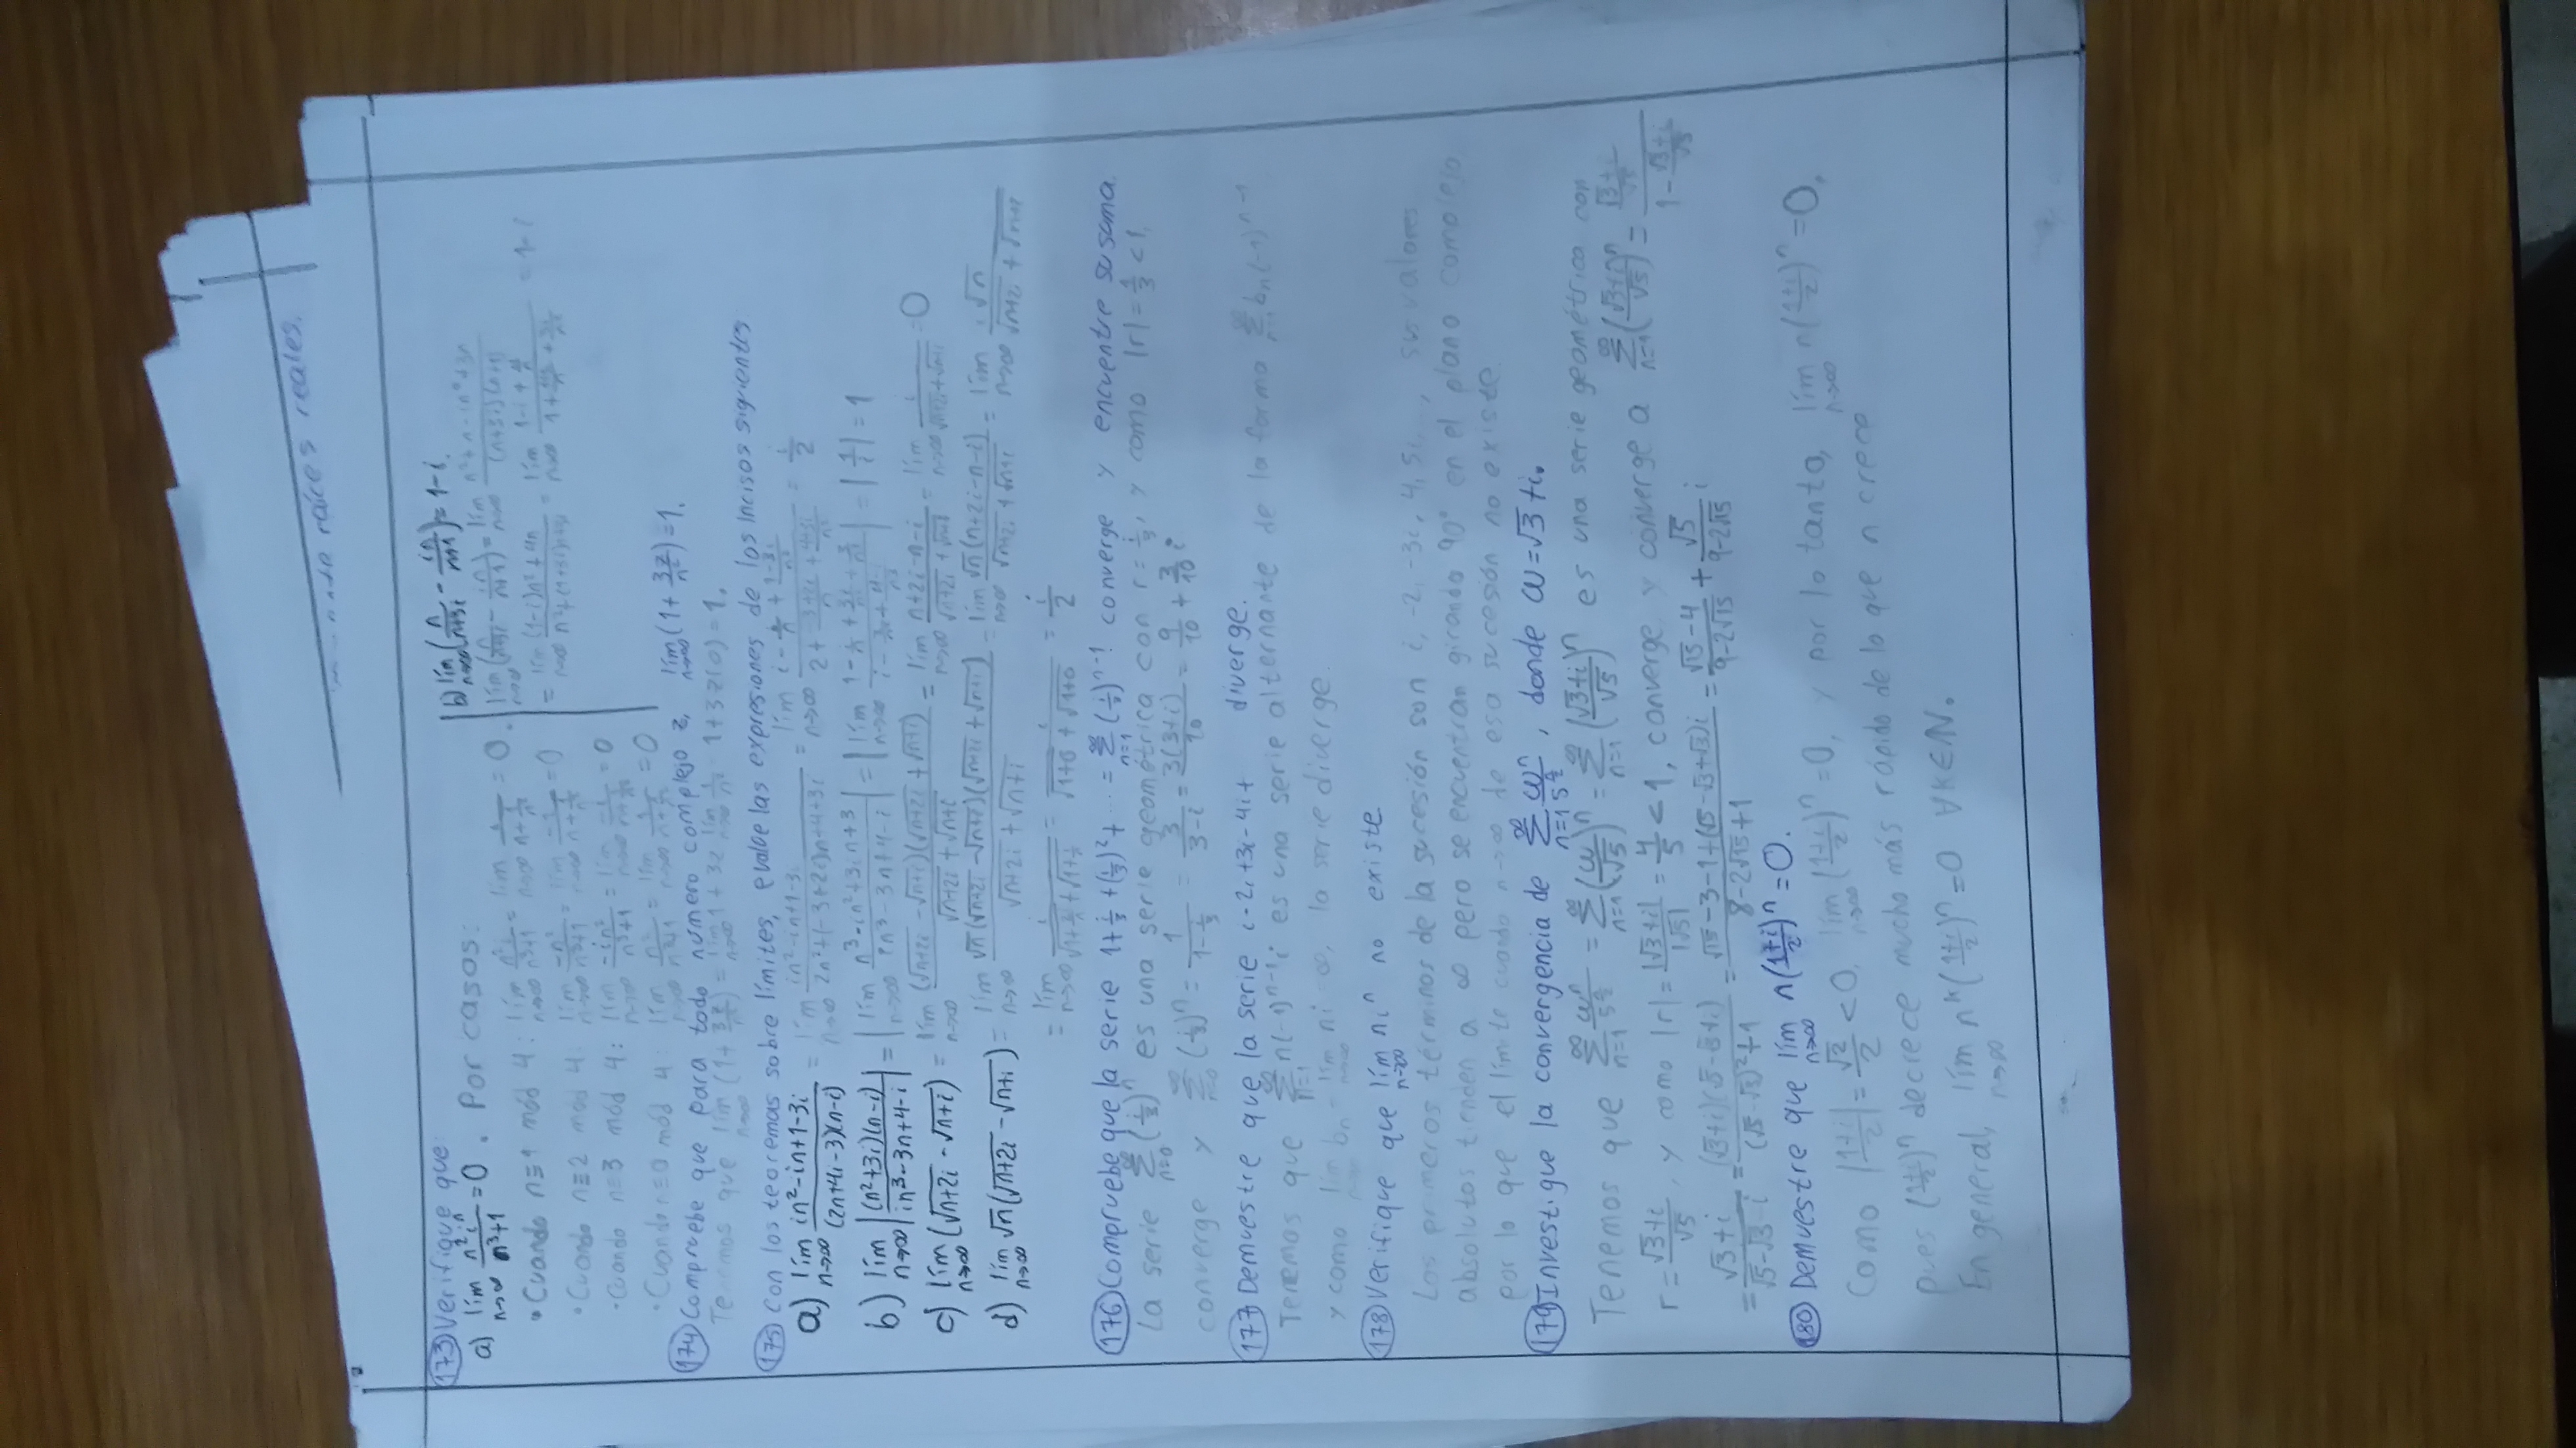 raíces reales.
173 Verifique que:
a) lím n→∞ n²iⁿ/(n³+1) = 0. Por casos:
• Cuando n≡1 mód 4: lím n→∞ n²i/(n³+1) = lím n→∞ i/(n+1/n²) = 0.
• Cuando n≡2 mód 4: lím n→∞ -n²/(n³+1) = lím n→∞ -1/(n+1/n²) = 0
• Cuando n≡3 mód 4: lím n→∞ -in²/(n³+1) = lím n→∞ -i/(n+1/n²) = 0
• Cuando n≡0 mód 4: lím n→∞ n²/(n³+1) = lím n→∞ 1/(n+1/n²) = 0
b) lím n→∞ (n/(n+3i) - in/(n+1)) = 1-i.
lím n→∞ (n/(n+3i) - in/(n+1)) = lím n→∞ (n²+n-in²+3n)/((n+3i)(n+1))
= lím n→∞ ((1-i)n²+4n)/(n²+(1+3i)n+3i) = lím n→∞ (1-i+4/n)/(1+(1+3i)/n+3i/n²) = 1-i
174 Compruebe que para todo número complejo z, lím n→∞ (1+3z/n²) = 1.
Tenemos que lím n→∞ (1+3z/n²) = lím n→∞ 1+3z lím n→∞ 1/n² = 1+3z(0) = 1.
175 Con los teoremas sobre límites, evalúe las expresiones de los incisos siguientes
a) lím n→∞ (in²-in+1-3i)/((2n+4i-3)(n-i)) = lím n→∞ (in²-in+1-3i)/(2n²+(-3+2i)n+4+3i) = lím n→∞ (i-i/n+(1-3i)/n²)/(2+(-3+2i)/n+(4+3i)/n²) = i/2
b) lím n→∞ |(n²+3i)(n-i)/(in³-3n+4-i)| = |lím n→∞ (n³-in²+3in+3)/(in³-3n+4-i)| = |lím n→∞ (1-i/n+3i/n²+3/n³)/(i-3/n²+(4-i)/n³)| = |1/i| = 1
c) lím n→∞ (√(n+2i)-√(n+i)) = lím n→∞ (√(n+2i)-√(n+i))(√(n+2i)+√(n+i))/(√(n+2i)+√(n+i)) = lím n→∞ (n+2i-n-i)/(√(n+2i)+√(n+i)) = lím n→∞ i/(√(n+2i)+√(n+i)) = 0
d) lím n→∞ √n(√(n+2i)-√(n+i)) = lím n→∞ √n(√(n+2i)-√(n+i))(√(n+2i)+√(n+i))/(√(n+2i)+√(n+i)) = lím n→∞ √n(n+2i-n-i)/(√(n+2i)+√(n+i)) = lím n→∞ i√n/(√(n+2i)+√(n+i))
= lím n→∞ i/(√(1+2i/n)+√(1+i/n)) = i/(√(1+0)+√(1+0)) = i/2
176 Compruebe que la serie 1+i/3+(i/3)²+... = ∞Σn=1 (i/3)ⁿ⁻¹ converge y encuentre su suma.
La serie ∞Σn=0 (i/3)ⁿ es una serie geométrica con r=i/3, y como |r|=1/3<1,
converge y ∞Σn=0 (i/3)ⁿ = 1/(1-i/3) = 3/(3-i) = 3(3+i)/10 = 9/10 + 3/10 i
177 Demuestre que la serie i-2i+3i-4i+ diverge.
Tenemos que ∞Σn=1 n(-1)ⁿ⁻¹i es una serie alternante de la forma ∞Σn=1 bn(-1)ⁿ⁻¹
y como lím n→∞ bn = lím n→∞ ni = ∞, la serie diverge.
178 Verifique que lím n→∞ niⁿ no existe
Los primeros términos de la sucesión son i, -2, -3i, 4, 5i, ..., sus valores
absolutos tienden a ∞ pero se encuentran girando 90° en el plano complejo
por lo que el límite cuando n→∞ de esa sucesión no existe.
179 Investigue la convergencia de ∞Σn=1 ωⁿ/5^(n/2), donde ω=√3+i.
Tenemos que ∞Σn=1 ωⁿ/5^(n/2) = ∞Σn=1 (ω/√5)ⁿ = ∞Σn=1 ((√3+i)/√5)ⁿ es una serie geométrica con
r=(√3+i)/√5, y como |r|=|√3+i|/|√5|=4/5<1, converge y converge a ∞Σn=1 ((√3+i)/√5)ⁿ = ((√3+i)/√5)/(1-(√3+i)/√5)
= (√3+i)/(√5-√3-i) = (√3+i)(√5-√3+i)/((√5-√3)²+1) = (√15-3-1+(√5-√3+√3)i)/(8-2√15+1) = (√15-4)/(9-2√15) + √5/(9-2√15) i
180 Demuestre que lím n→∞ n((1+i)/2)ⁿ = 0.
Como |(1+i)/2| = √2/2 < 0, lím n→∞ ((1+i)/2)ⁿ = 0, y por lo tanto, lím n→∞ n((1+i)/2)ⁿ = 0,
pues ((1+i)/2)ⁿ decrece mucho más rápido de lo que n crece
En general, lím n→∞ nᵏ((1+i)/2)ⁿ = 0 ∀k∈ℕ.